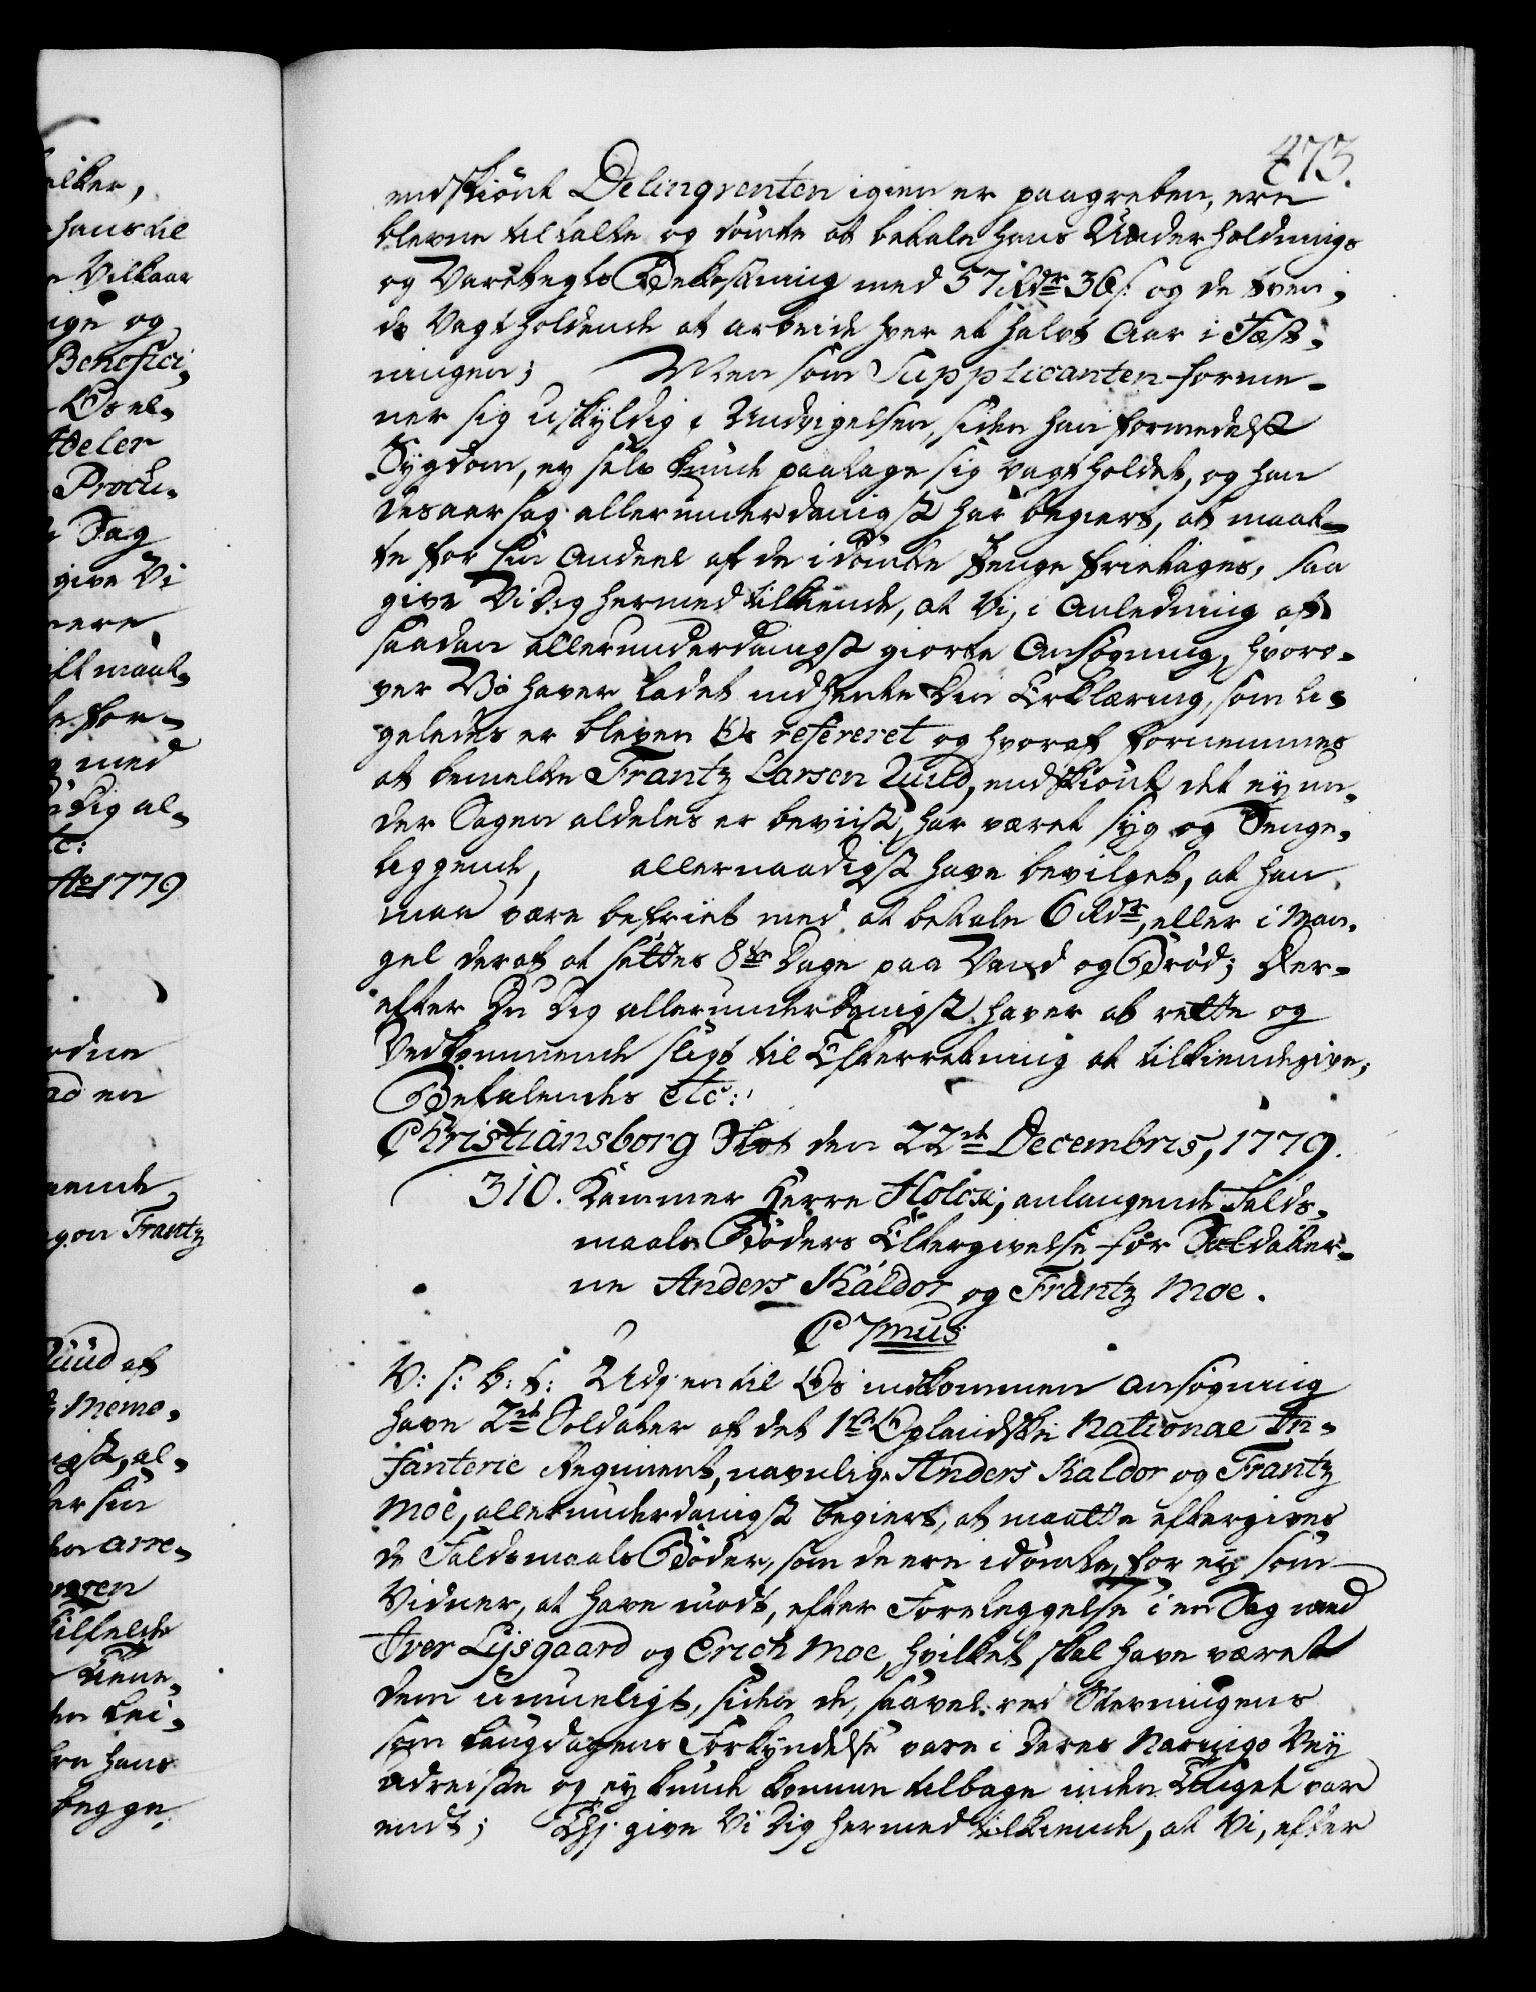 473.
endskiönt Delinqventen igien er paagreben, ere
blevne tiltalte og dömte at betale hans Underholdnings
og Varetegts Bekostning med 57 Rdr 36 s. og de tven-
de Vagtholdende at arbeide hver et halvt Aar i Fæst-
ningen; Men som Supplicanten forme-
ner sig uskyldig i Undvigelsen, siden han formedelst
Sygdom, ey selv kunde paatage sig Vagtholdet, og han
desaarsag allerunderdanigst har begiert, at maat-
te for sin Andeel af de idömte Penge frietages, saa
give Vi Dig hermed tilkiende, at Vi, i Anledning af
saadan allerunderdanigst giorte Ansögning, hvoro-
ver Vi haver ladet indhente Din Erklæring, som li-
geledes er bleven Os refereret og hvoraf fornemmes
at bemelte Frantz Larsen Ruud, endskiönt det ey un-
der Sagen aldeles er beviist, har været syg og Senge-
liggende, allernaadigst have bevilget, at han
maa være befriet med at betale 6 Rdr, eller i Man-
gel deraf at settes 8te Dage paa Vand og Bröd; Der-
efter Du Dig allerunderdanigst haver at rette og
Vedkommende sligt til Efterretning at tilkiendegive;
Befalendes etc:
Christiansborg Slot den 22de Decembris, 1779.
310. Kammer Herre Holck; anlangende Falds-
maals Böders Eftergivelse for Soldater-
ne Anders Kaldor og Frantz Moe.
C 7mus
V: s: G: t: Udj en til Os indkommen Ansögning
have 2de Soldater af det 1te Oplandske National In-
fanterie Regiment, navnlig Anders Kaldor og Frantz
Moe, allerunderdanigst begiert, at maatte eftergives
de Faldsmaals Böder, som de ere idömte, for ey som
Vidner, at have mödt, efter Foreleggelse i en Sag med
Iver Lysgaard og Erich Moe, hvilket skal have været
dem umueligt, siden de, saavel ved Stevningens
som Laugdagens Forkyndelse vare i deres Nærings Vey
udreiste og ey kunde komme tilbage inden Tinget var
endt; Thj give Vi Dig hermed tilkiende, at Vi, efter